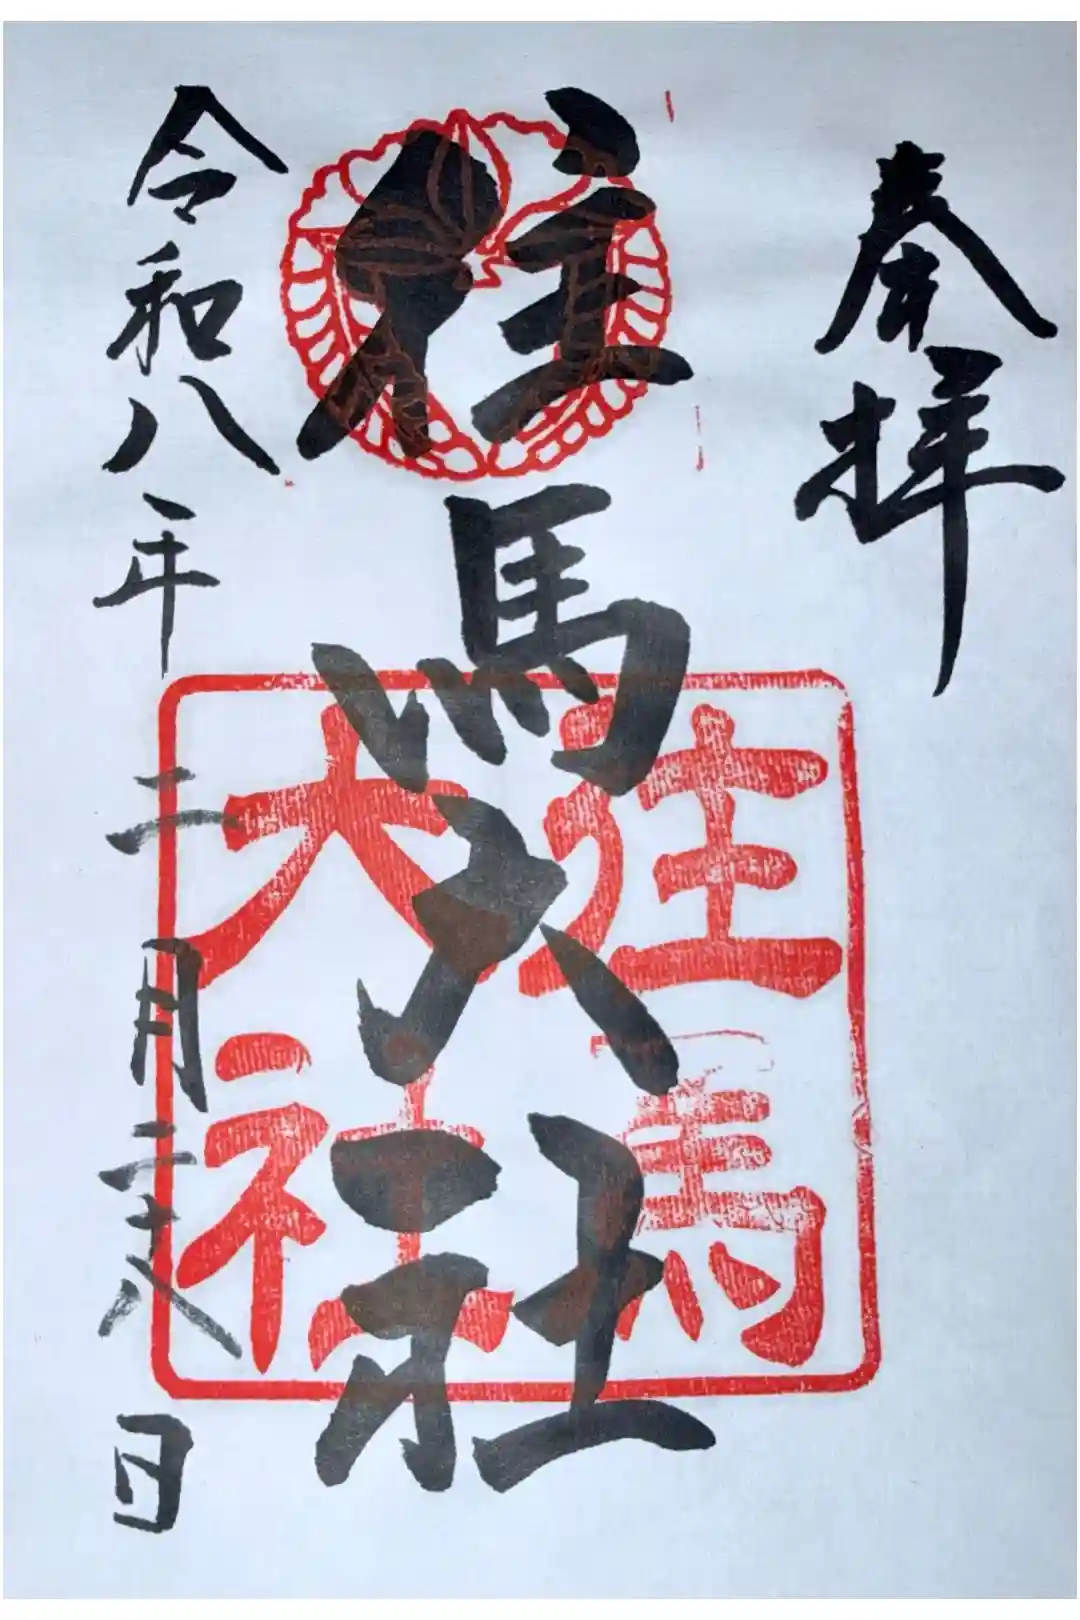 奉拝
往馬大社
往馬
大社
令和八年二月二十八日